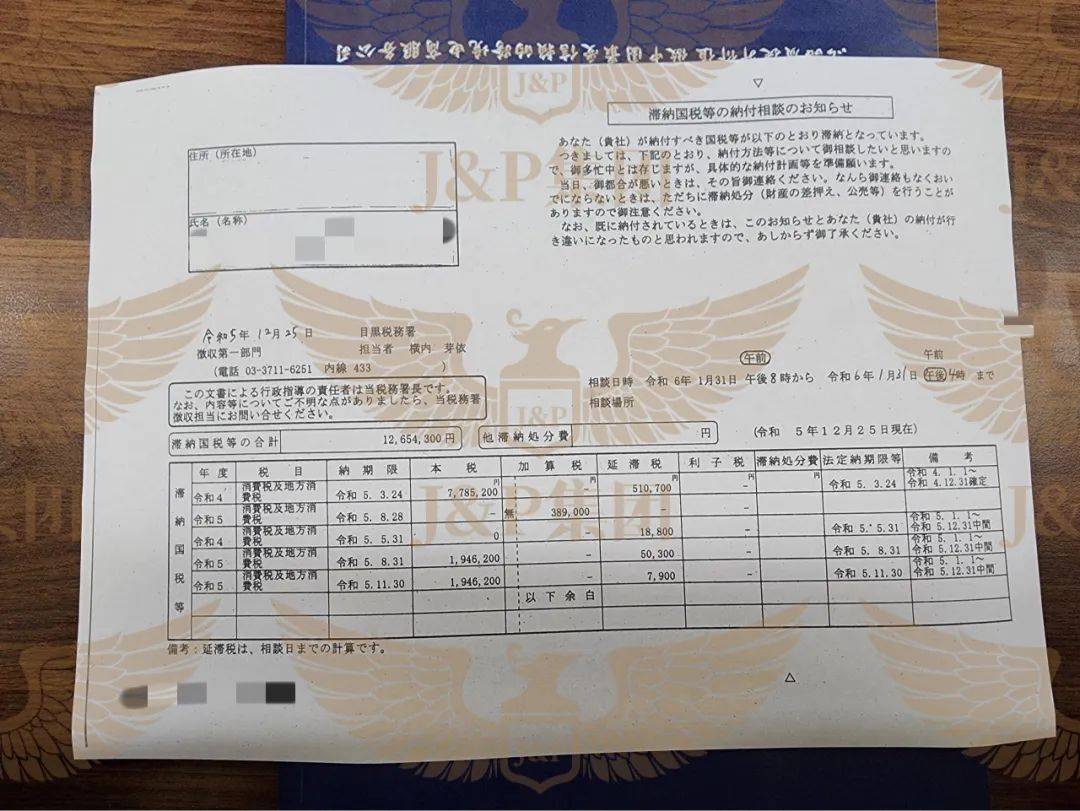 J&P
J&P集团
滞納国税等の納付相談のお知らせ
あなた（貴社）が納付すべき国税等が以下のとおり滞納となっています。
つきましては、下記のとおり、納付方法等について御相談したいと思いますの
で、御多忙中とは存じますが、具体的な納付計画等を準備願います。
当日、御都合が悪いときは、その旨御連絡ください。なんら御連絡もなくおい
でにならないときは、ただちに滞納処分（財産の差押え、公売等）を行うことが
ありますので御注意ください。
なお、既に納付されているときは、このお知らせとあなた（貴社）の納付が行
き違いになったものと思われますので、あしからず御了承ください。
住所（所在地）
氏名（名称）
令和5年12月25日
目黒税務署
徴収第一部門
担当者 横内 芽依
（電話 03-3711-6251 内線 433 ）
この文書による行政指導の責任者は当税務署長です。
なお、内容等についてご不明な点がありましたら、当税務署
徴収担当にお問い合せください。
午前 午前
相談日時 令和 6年 1月31日 午後 8時から 令和 6年 1月31日 午後 4時 まで
相談場所
滞納国税等の合計 12,654,300円 他滞納処分費 円 （令和 5年12月25日現在）
滞納国税等
年度 税目 納期限 本税 加算税 延滞税 利子税 滞納処分費 法定納期限等 備考
令和4 消費税及地方消費税 令和 5. 3.24 7,785,200円 円 510,700円 －円 円 令和 5. 3.24 令和 4. 1. 1～令和 4.12.31確定
令和5 消費税及地方消費税 令和 5. 8.28 － 無 389,000 － －
令和4 消費税及地方消費税 令和 5. 5.31 0 18,800 － 令和 5. 5.31 令和 5. 1. 1～令和 5.12.31中間
令和5 消費税及地方消費税 令和 5. 8.31 1,946,200 － 50,300 － 令和 5. 8.31 令和 5. 1. 1～令和 5.12.31中間
令和5 消費税及地方消費税 令和 5.11.30 1,946,200 － 7,900 － 令和 5.11.30 令和 5. 1. 1～令和 5.12.31中間
以下余白
備考：延滞税は、相談日までの計算です。